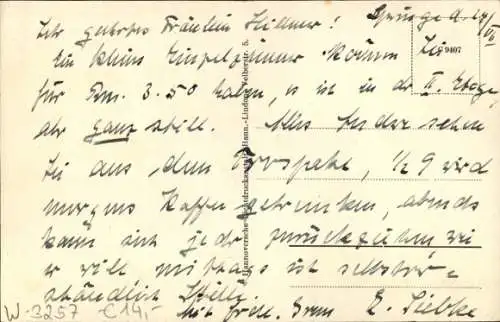 Sehr geehrtes Fräulein Hillmer! Springe d. 24/VI
Ein kleines Einzelzimmer können Sie
für Rm. 3.50 haben, es ist in der II. Etage,
aber ganz still. Alles andere sehen
Sie aus dem Prospekte, 1/2 9 wird
morgens Kaffee getrunken, abends
kann sich jeder zurückziehen wie
er will mittags ist selbstver-
ständlich Stille.
Mit frdl. Gruss E. Liebke
9407
Hannoversche Lichtdruckanstalt, Hann.-Linden, Velberstr. 5.
W-3257 €14,-